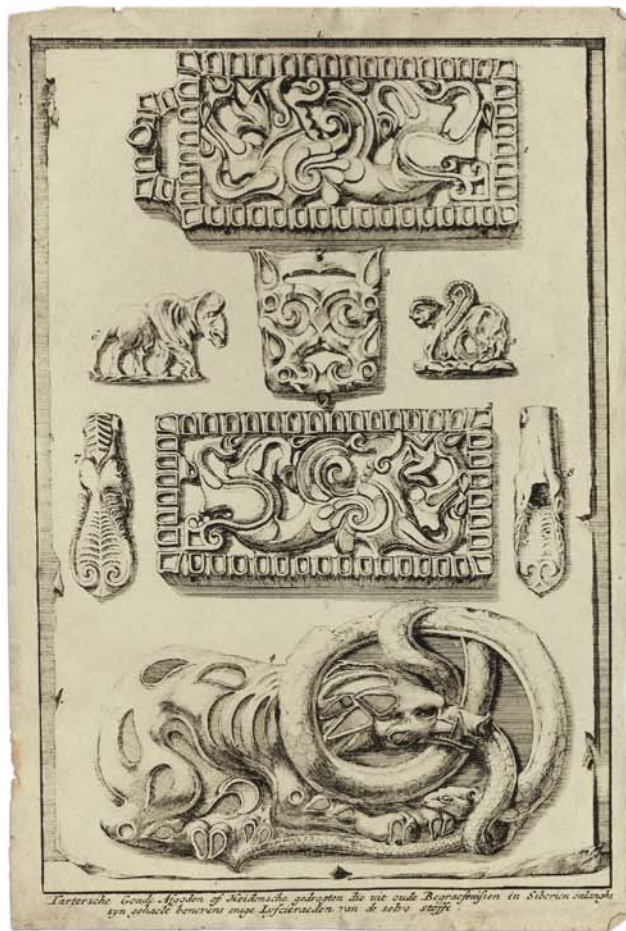 1.
7
8
4
Tartersche Goude Afgooden of Heidensche gedrogten die uit oude Begraefnissen in Siberien onlanghs
syn gehaelt benevens enige Lyfscieraeden van de selve stoffe